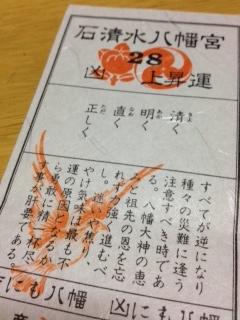 石清水八幡宮
28
凶 上昇運
清く
明く
直く
正しく
すべてが逆になり
種々の災難に逢う
注意すべき時であ
る。八幡大神の恵
みと祖先の恩を忘
れず力強く進むべ
し。迷いや焦り、
やけ気味は最も不
運の原因となるか
ら
事が肝要である。
にも八幡
凶にも八幡